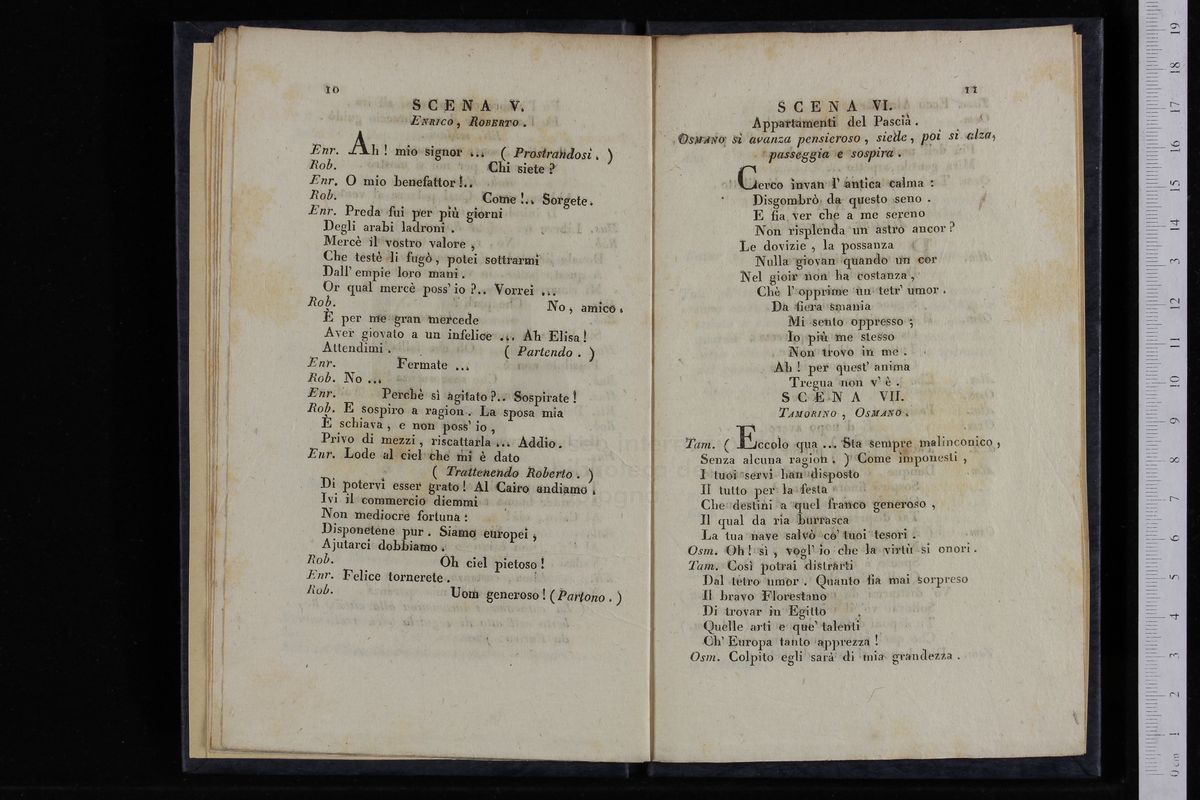 10
SCENA V.
ENRICO, ROBERTO.
Enr. Ah! mio signor ... (Prostrandosi.)
Rob. Chi siete?
Enr. O mio benefattor!..
Rob. Come!.. Sorgete.
Enr. Preda fui per più giorni
Degli arabi ladroni.
Mercè il vostro valore,
Che testè li fugò, potei sottrarmi
Dall' empie loro mani.
Or qual mercè poss' io?.. Vorrei ...
Rob. No, amico.
È per me gran mercede
Aver giovato a un infelice ... Ah Elisa!
Attendimi. (Partendo.)
Enr. Fermate ...
Rob. No ...
Enr. Perchè sì agitato?.. Sospirate!
Rob. E sospiro a ragion. La sposa mia
È schiava, e non poss' io,
Privo di mezzi, riscattarla ... Addio.
Enr. Lode al ciel che mi è dato
(Trattenendo Roberto.)
Di potervi esser grato! Al Cairo andiamo.
Ivi il commercio diemmi
Non mediocre fortuna:
Disponetene pur. Siamo europei,
Ajutarci dobbiamo.
Rob. Oh ciel pietoso!
Enr. Felice tornerete.
Rob. Uom generoso! (Partono.)
11
SCENA VI.
Appartamenti del Pascià.
OSMANO si avanza pensieroso, siede, poi si alza,
passeggia e sospira.
Cerco invan l' antica calma:
Disgombrò da questo seno.
E fia ver che a me sereno
Non risplenda un astro ancor?
Le dovizie, la possanza
Nulla giovan quando un cor
Nel gioir non ha costanza,
Chè l' opprime un tetr' umor.
Da fiera smania
Mi sento oppresso;
Io più me stesso
Non trovo in me.
Ah! per quest' anima
Tregua non v' è.
SCENA VII.
TAMORINO, OSMANO.
Tam. (Eccolo qua ... Sta sempre malinconico,
Senza alcuna ragion.) Come imponesti,
I tuoi servi han disposto
Il tutto per la festa
Che destini a quel franco generoso,
Il qual da ria burrasca
La tua nave salvò co' tuoi tesori.
Osm. Oh! sì, vogl' io che la virtù si onori.
Tam. Così potrai distrarti
Dal tetro umor. Quanto fia mai sorpreso
Il bravo Florestano
Di trovar in Egitto
Quelle arti e que' talenti
Ch' Europa tanto apprezza!
Osm. Colpito egli sarà di mia grandezza.
0 cm 1 2 3 4 5 6 7 8 9 10 11 12 13 14 15 16 17 18 19